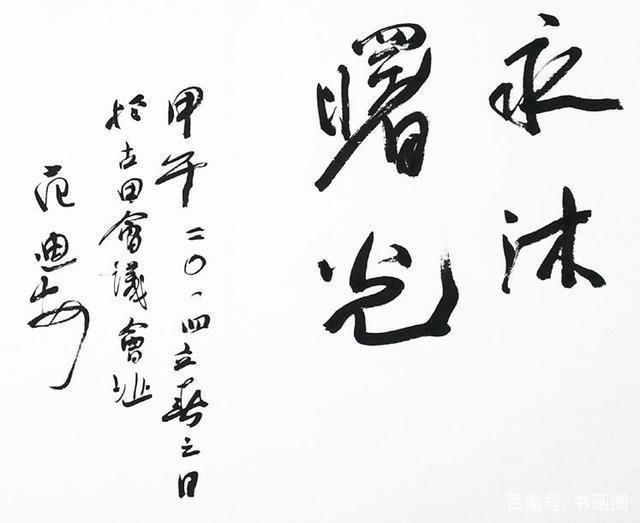 永沐
曙光
甲午二〇一四立春之日
於古田會議會址
范迪安
百家号/书画圈